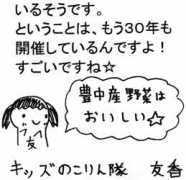 いるそうです。
ということは、もう30年も
開催しているんですよ！
すごいですね☆
豊中産野菜は
おいしい☆
友
キッズのこりん隊　友香